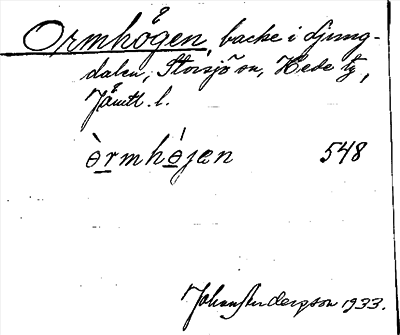 Ormhögen, backe i Ljung-
dalen, Storsjö sn, Hede tg,
Jämtl. l.
òrmhǿjen 548
Johan Anderson 1933.